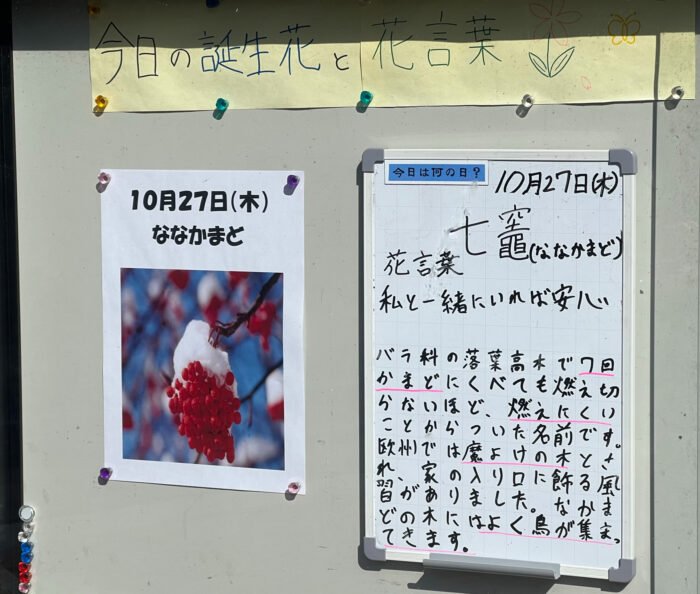 今日の誕生花と花言葉
10月27日(木)
ななかまど
今日は何の日？
10月27日(木)
七竈(ななかまど)
花言葉
私と一緒にいれば安心
バラ科の落葉高木で7回
かまどにくべても燃え切
らないほど、燃えにくい
ことからついた名前です。
欧州では魔よけの木とさ
れ、家の入り口に飾る風
習がありました。なかま
どの木にはよく鳥が集まっ
てきます。